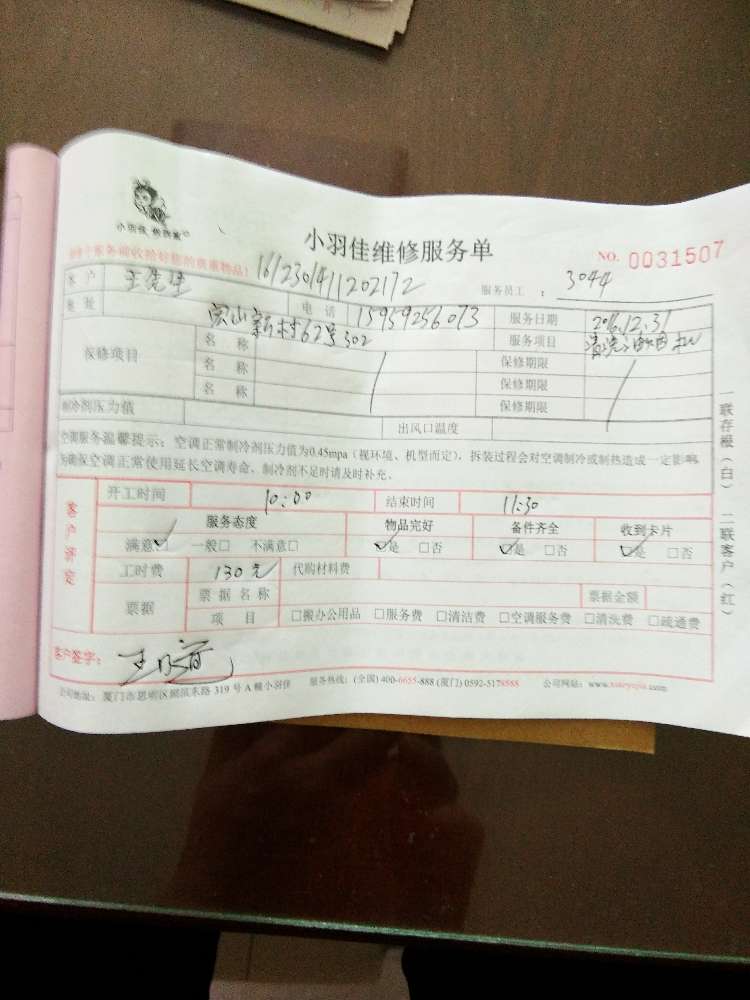 小羽佳维修服务单
NO. 0031507
161230141120217​2
服务员工 ： 3044
客 户 王先生 电 话 15959256073 服务日期 2016.12.31
地 址 新村62号302 服务项目 清洗油烟机
保修项目 名 称 保修期限
名 称 保修期限
名 称 保修期限
制冷剂压力值 出风口温度
空调服务温馨提示：空调正常制冷剂压力值为0.45mpa（视环境、机型而定），拆装过程会对空调制冷或制热造成一定影响
为确保空调正常使用延长空调寿命、制冷剂不足时请及时补充。
客户评定
开工时间 10:00 结束时间 11:30
服务态度 物品完好 备件齐全 收到卡片
满意☑ 一般□ 不满意□ ☑是 □否 ☑是 □否 ☑是 □否
工时费 130元 代购材料费
票据 票 据 名 称 票据金额
项 目 □搬办公用品 □服务费 □清洁费 □空调服务费 □清洗费 □疏通费
客户签字：
公司地址：厦门市思明区湖滨东路 319 号 A 幢小羽佳 服务热线：(全国) 400-6655-888 (厦门) 0592-5178588 公司网站：www.xiaoyujia.com
一联存根（白） 二联客户（红）